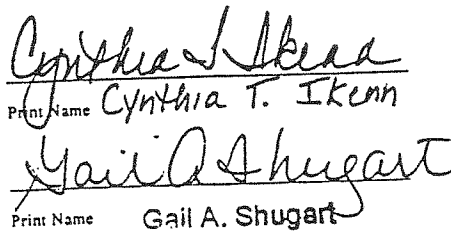 Cynthia T. Ikenn
Print Name Cynthia T. Ikenn
Gail A Shugart
Print Name Gail A. Shugart